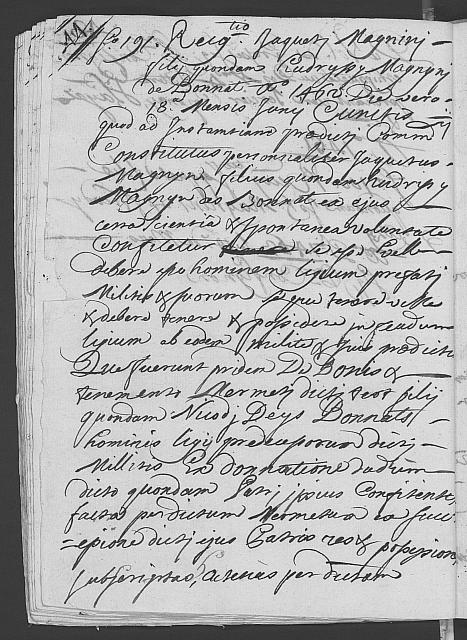 fo 191. Recog.tio Jaqueti Magnini
filij quondam Rudryssy Magnyny
de Bonnat Ao 1462 Die vero
18a Mensis Junij Cunctis &
quod ad Instantiam predicti Comm
Constitutus personaliter Jaquetus
Magnyn filius quondam Rudryssy
Magnyn des Bonnat ex ejus
certa scientia & spontanea voluntate
Confitetur se esse velle
debere esse hominem ligium prefati
Militis & suorum seque tenere velle
& debere tenere & possidere in feudum
ligium ab eodem milite & suis predictis
Que fuerunt pridem De Bonis &
tenemento Mermeti dicti filij
quondam Nicodi Deys Bonnats
hominis ligij predecessorum dicti
Militis Ex donnatione dudum
dicto quondam Patri ipsius Confitentis
facta per dictum Mermetum ex succ
=epione dicti ejus Patris res & possession
subscriptas, acteneis per dictam